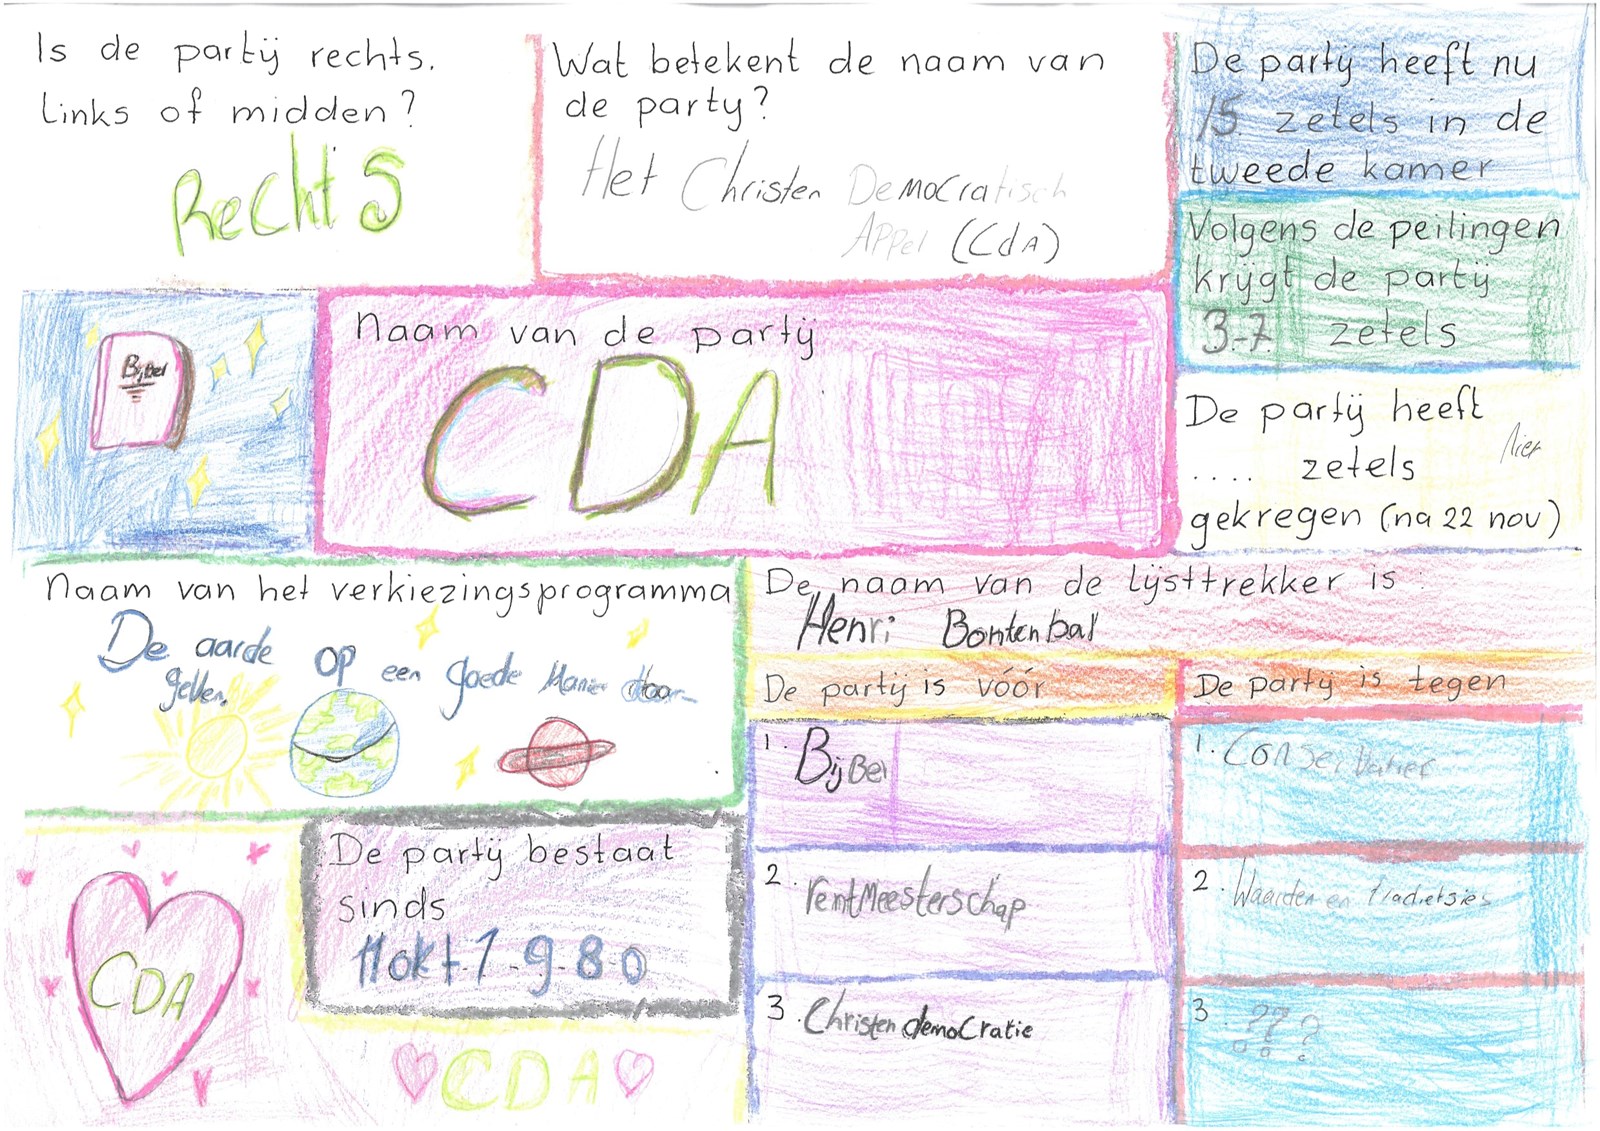 Is de partij rechts.
links of midden?
Rechts
Wat betekent de naam van
de party?
Het Christen Democratisch
Appel (CdA)
De partij heeft nu
15 zetels in de
tweede kamer
Volgens de peilingen
krijgt de partij
3-7 zetels
De partij heeft
.... zetels
gekregen (na 22 nov)
Bijbel
Naam van de partij
CDA
Naam van het verkiezingsprogramma
De aarde op een goede Manier door-
geven.
De naam van de lijsttrekker is :
Henri Bontenbal
De partij is vóór
1. Bijbel
2. rentMeesterschap
3. Christen democratie
De partij is tegen
1. Conservatief
2. Waarden en tradietsies
3. ???
De partij bestaat
sinds
11 okt 1980
CDA
CDA